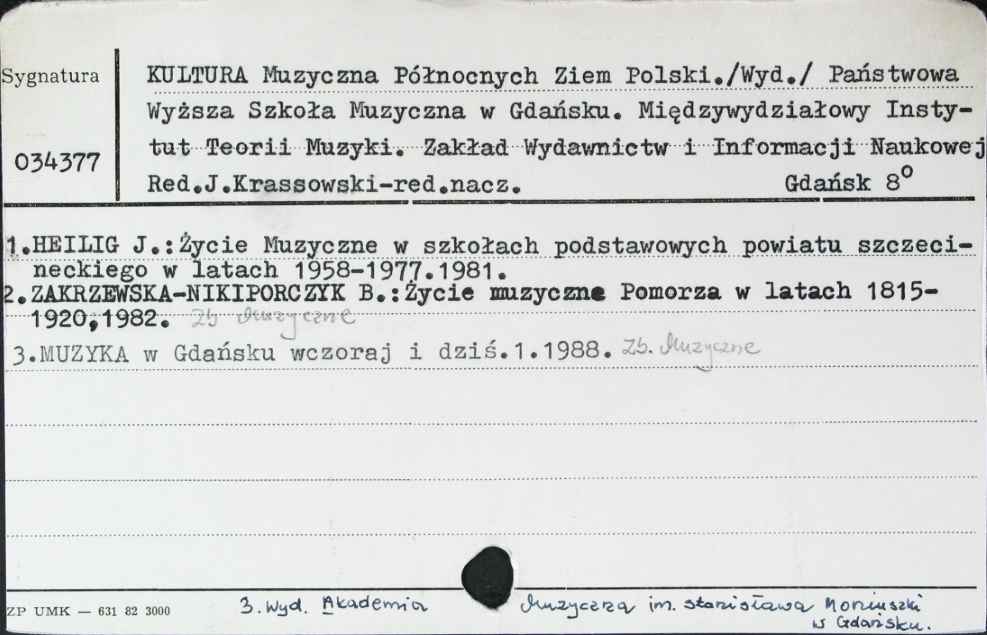 Sygnatura
034377
KULTURA Muzyczna Północnych Ziem Polski./Wyd./ Państwowa
Wyższa Szkoła Muzyczna w Gdańsku. Międzywydziałowy Insty-
tut Teorii Muzyki. Zakład Wydawnictw i Informacji Naukowej
Red.J.Krassowski-red.nacz. Gdańsk 8°
1.HEILIG J.:Życie Muzyczne w szkołach podstawowych powiatu szczeci-
neckiego w latach 1958-1977.1981.
2.ZAKRZEWSKA-NIKIPORCZYK B.:Życie muzyczne Pomorza w latach 1815-
1920,1982. Zb Muzyczne
3.MUZYKA w Gdańsku wczoraj i dziś.1.1988. Zb. Muzyczne
ZP UMK — 631 82 3000
3. Wyd. Akademia Muzyczna im. Stanisława Moniuszki
w Gdańsku.